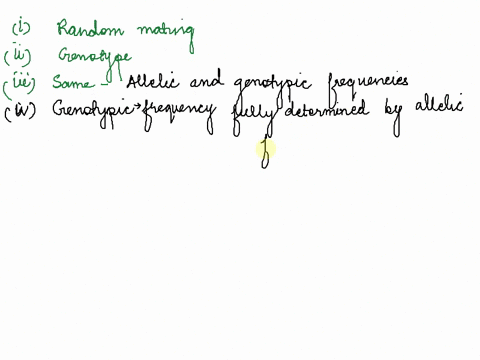 (i) Random mating
(ii) Genotype
(iii) Same - Allelic and genotypic frequencies
(iv) Genotypic → frequency fully determined by allelic
f